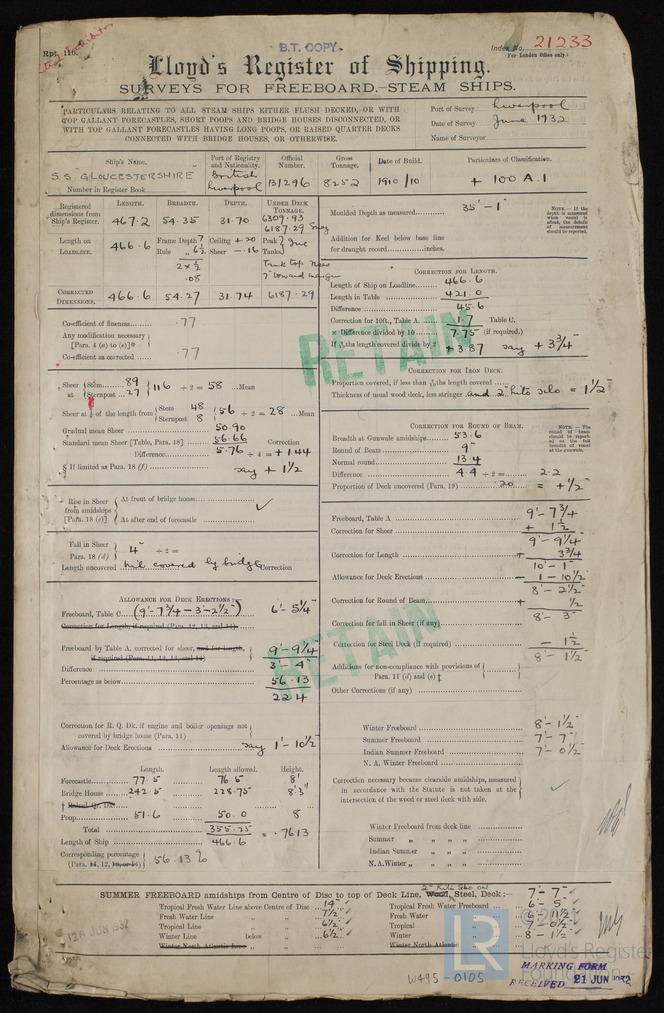 Rpt. 11b.
B.T. COPY
Index No. 21233
(For London Office only.)
Lloyd's Register of Shipping.
SURVEYS FOR FREEBOARD.—STEAM SHIPS.
PARTICULARS RELATING TO ALL STEAM SHIPS EITHER FLUSH DECKED, OR WITH
TOP GALLANT FORECASTLES, SHORT POOPS AND BRIDGE HOUSES DISCONNECTED, OR
WITH TOP GALLANT FORECASTLES HAVING LONG POOPS, OR RAISED QUARTER DECKS
CONNECTED WITH BRIDGE HOUSES, OR OTHERWISE.
Port of Survey Liverpool
Date of Survey June 1932
Name of Surveyor
Ship's Name. Port of Registry and Nationality. Official Number. Gross Tonnage. Date of Build. Particulars of Classification.
S.S. GLOUCESTERSHIRE British Liverpool 131296 8252 1910/10 + 100 A.1
Number in Register Book
Registered dimensions from Ship's Register. LENGTH. 467.2 BREADTH. 54.35 DEPTH. 31.70 UNDER DECK TONNAGE. 6309.93
6187.29
Length on LOADLINE. 466.6 Frame Depth 7 Ceiling + .20 Peak
Rule „ 6½ Sheer — .16 Tanks
2 x ½ Tank top
.08
CORRECTED DIMENSIONS. 466.6 54.27 31.74 6187.29
Moulded Depth as measured 35'-1"
NOTE.—If the depth is measured when vessel is afloat, the details of measurement should be reported.
Addition for Keel below base line
for draught record inches.
CORRECTION FOR LENGTH.
Length of Ship on Loadline 466.6
Length in Table 421.0
Difference 45.6
Correction for 10ft., Table A. 1.7 Table C.
× Difference divided by 10 7.75 (if required.)
+ 3.87 say + 3¾"
Co-efficient of fineness .77
Any modification necessary
[Para. 4 (a) to (e)]
Co-efficient as corrected .77
RETAIN
CORRECTION FOR IRON DECK.
Proportion covered, if less than
Thickness of usual wood deck, less stringer = 1½"
Sheer at Stem 89 Sternpost 27 116 ÷ 2 = 58 Mean
Sheer at ⅛ of the length from Stem 48 Sternpost 8 56 ÷ 2 = 28 Mean
Gradual mean Sheer 50.90
Standard mean Sheer [Table, Para. 18] 56.66 Correction
Difference 5.76 ÷ 4 = + 1.44
§ If limited as Para. 18 (f) say + 1½
CORRECTION FOR ROUND OF BEAM.
Breadth at Gunwale amidships 53.6
Round of Beam 9"
Normal round 13.4
Difference 4.4 ÷ 2 = 2.2
Proportion of Deck uncovered (Para. 19) .20 = + ½"
NOTE.—The round of beam should be reported as the full breadth of vessel at the gunwale.
Rise in Sheer from amidships [Para. 18 (e)]
At front of bridge house
At after end of forecastle
Fall in Sheer Para. 18 (d) 4" ÷ 2 =
Length uncovered nil covered by bridge Correction
Freeboard, Table A 9'-7¾"
Correction for Sheer + 1½
9'-9¼"
Correction for Length + 3¾
10'-1"
Allowance for Deck Erections — 1-10½
8'-2½"
Correction for Round of Beam + ½
8'-3"
Correction for fall in Sheer (if any)
Correction for Steel Deck (if required) — 1½
8'-1½"
Additions for non-compliance with provisions of
Para. 11 (d) and (e) †
Other Corrections (if any)
ALLOWANCE FOR DECK ERECTIONS:
Freeboard, Table C (9'-7¾ — 3'-2½") 6'-5¼"
Correction for Length, if required (Para. 12, 13, and 14)
Freeboard by Table A, corrected for sheer, and for length,
if required (Para. 11, 12, 13, and 14) 9'-9¼
Difference 3'-4"
Percentage as below 56.13
22.4
Correction for R. Q. Dk. if engine and boiler openings not
covered by bridge house (Para. 11)
Allowance for Deck Erections say 1'-10½"
RETAIN
Winter Freeboard 8'-1½"
Summer Freeboard 7'-7"
Indian Summer Freeboard 7'-0½"
N. A. Winter Freeboard
Correction necessary because clearside amidships, measured
in accordance with the Statute is not taken at the
intersection of the wood or steel deck with side.
Length. Length allowed. Height.
Forecastle 77.5 76.5 8'
Bridge House 242.5 228.75 8'3"
† Raised Qr. Dk.
Poop 51.6 50.0 8
Total 355.25 = .7613
Length of Ship 466.6
Corresponding percentage (Para. 11, 12, 13, or 14) 56.13 %
Winter Freeboard from deck line
Summer „ „ „ „
Indian Summer „ „ „
N.A. Winter „ „ „ „
SUMMER FREEBOARD amidships from Centre of Disc to top of Deck Line, Wood, Steel, Deck:— 7'-7"
Tropical Fresh Water Line above Centre of Disc 14" Tropical Fresh Water Freeboard 6'-5"
Fresh Water Line „ „ 7½" Fresh Water „ 6'-11½"
Tropical Line „ „ 6½" Tropical „ 7-0½"
Winter Line below „ 6½" Winter „ 8-1½"
Winter North Atlantic Line „ „ Winter North Atlantic „
LR
Lloyd's Register
Foundation
W495-0105
MARKING FORM
RECEIVED 21 JUN 1932